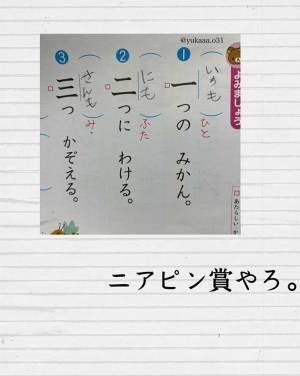 @yukaaa.o31
よみましょう
❶ 一つの みかん。
いちも
ひと
❷ 二つに わける。
にも
ふた
❸ 三つ かぞえる。
さんも
み
あたらしい か
ニアピン賞やろ。